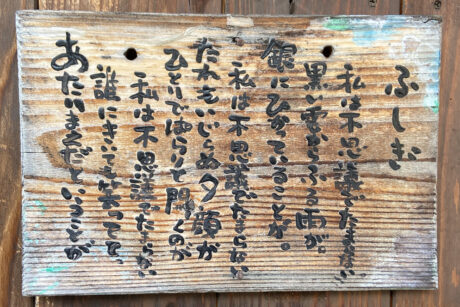 ふしぎ
私は不思議でたまらない
黒い雲からふる雨が。
銀にひかっていることが。
私は不思議でたまらない
たれもいじらぬ夕顔が
ひとりでぱらりと開くのが
私は不思議でたまらない
誰にきいても笑ってて、
あたりまえだということが